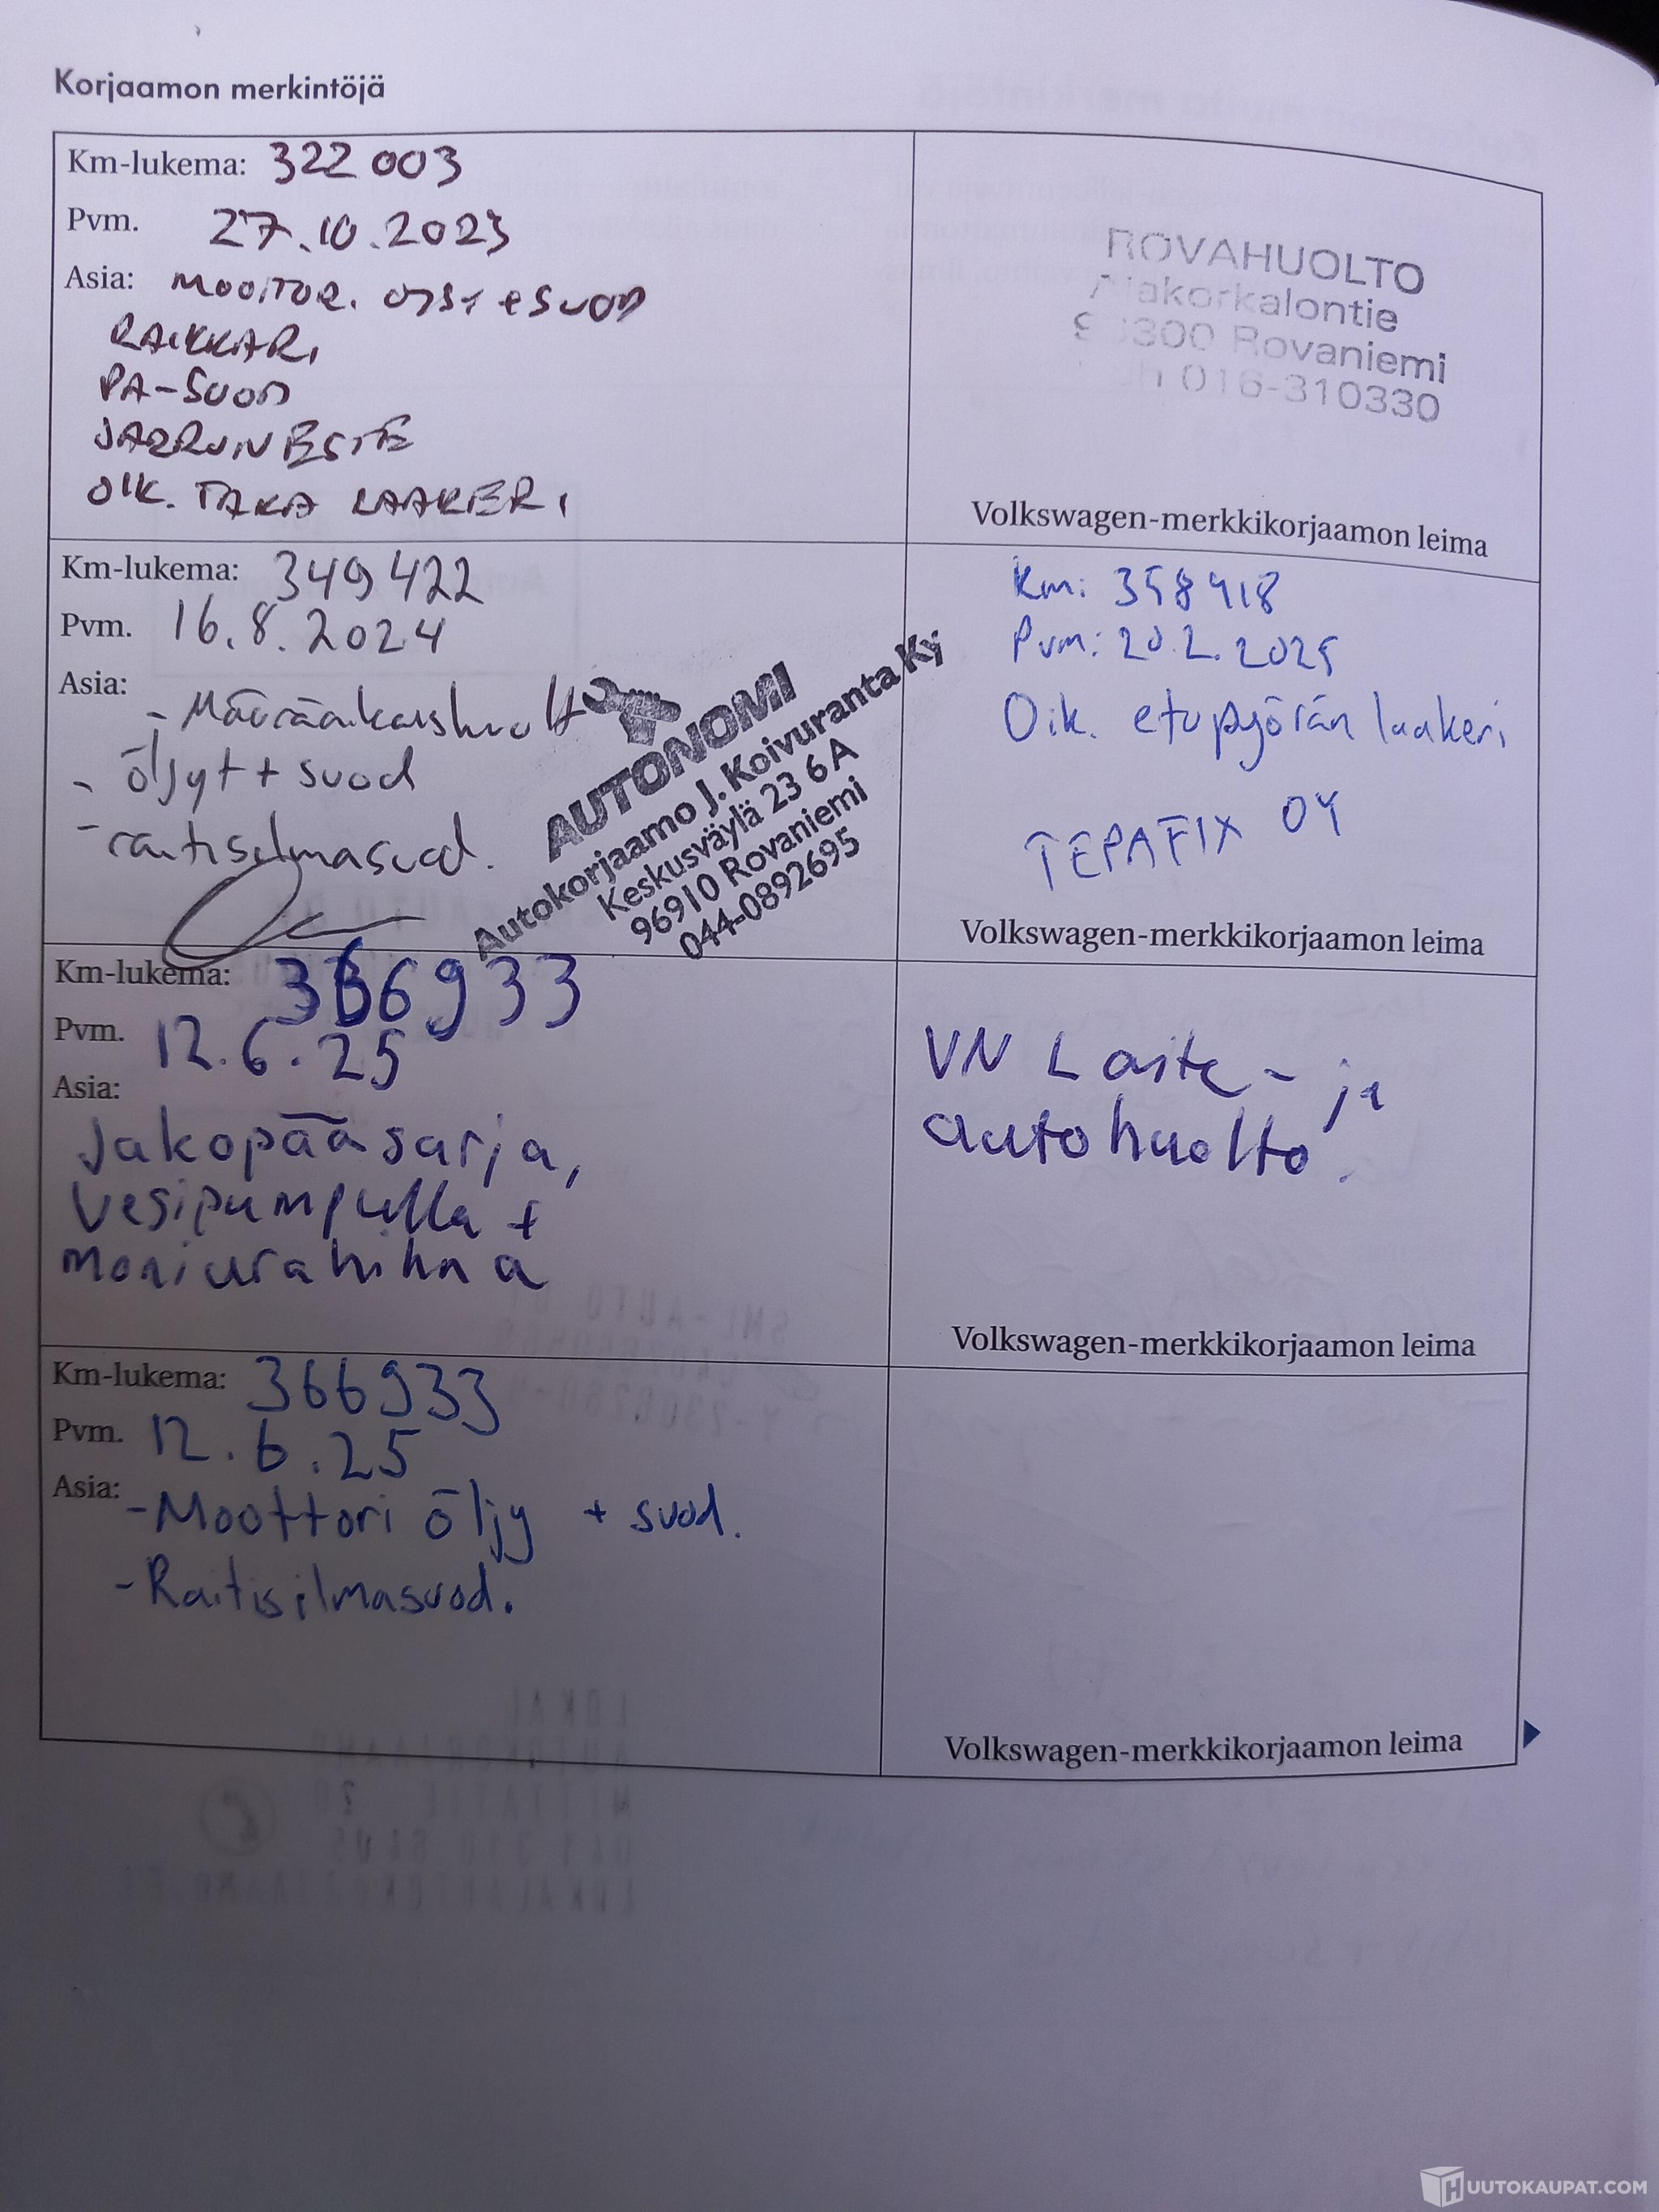 Korjaamon merkintöjä
Km-lukema: 322 003
Pvm. 27.10.2023
Asia:
RAIKKARI
PA-SUOD
JARRUNESTE
OIK. TAKA LAAKERI
ROVAHUOLTO
Alakorkalontie
96300 Rovaniemi
016-310330
Volkswagen-merkkikorjaamon leima
Km-lukema: 349 422
Pvm. 16.8.2024
Asia:
- Määräaikaishuolto
- öljyt + suod
- raitisilmasuod.
AUTONOMI
Autokorjaamo J. Koivuranta Ky
Keskusväylä 23 6 A
96910 Rovaniemi
044-0892695
Km: 358 418
Pvm: 20.2.2025
Oik. etupyörän laakeri
TEPAFIX OY
Volkswagen-merkkikorjaamon leima
Km-lukema: 366933
Pvm. 12.6.25
Asia:
Jakopääsarja,
vesipumpulla +
moniurahihna
VN Laite- ja
autohuolto.
Volkswagen-merkkikorjaamon leima
Km-lukema: 366933
Pvm. 12.6.25
Asia: - Moottori öljy + suod.
- Raitisilmasuod.
Volkswagen-merkkikorjaamon leima
HUUTOKAUPAT.COM